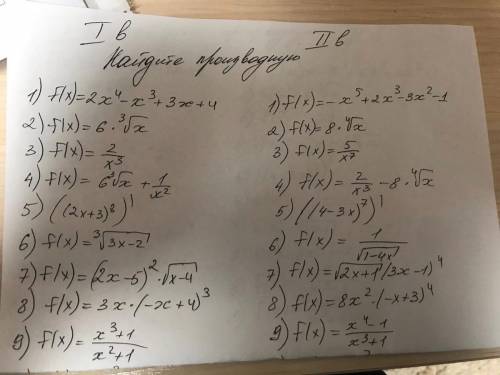 I в
II в
Найдите производную
1) f(x)=2x⁴-x³+3x+4
2) f(x)=6·∛x
3) f(x)=2/x³
4) f(x)=6∛x+1/x²
5) ((2x+3)⁸)'
6) f(x)=∛(3x-2)
7) f(x)=(2x-5)²·√(x-4)
8) f(x)=3x·(-x+4)³
9) f(x)=(x³+1)/(x²+1)
1) f(x)=-x⁵+2x³-3x²-1
2) f(x)=8·∜x
3) f(x)=5/x⁷
4) f(x)=2/x³-8·∜x
5) ((4-3x)⁷)'
6) f(x)=1/√(1-4x)
7) f(x)=√(2x+1)(3x-1)⁴
8) f(x)=8x²·(-x+3)⁴
9) f(x)=(x⁴-1)/(x³+1)